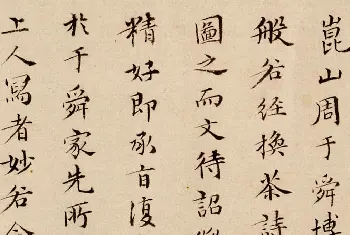 崑山周于舜博
般若經換茶詩
圖之而文待詔
精好即承旨復
於于舜家先所
上人寫者妙若